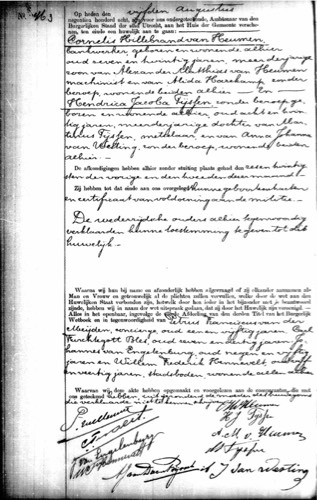 No. 463
Op heden den vijfden Augustus
negentien honderd acht, zijn voor ons ondergeteekende, Ambtenaar van den
Burgerlijken Stand der stad Utrecht, in het Huis der Gemeente verschenen,
ten einde een huwelijk aan te gaan:
Cornelis Hillebrand van Heumen,
bankwerker, geboren en wonende alhier
oud zeven en twintig jaren, meerderjarige
zoon van Alexander Matthias van Heumen
machinist en van Alida zonder
beroep, wonende beiden alhier – En
Hendrica Jacoba Tijssen zonder beroep ge-
boren en wonende alhier, oud acht en twin-
tig jaren, meerderjarige dochter van
Tijssen, metselaar en van Anna Johanna
van Welting, zonder beroep, wonende beiden
alhier –
De afkondigingen hebben alhier zonder stuiting plaats gehad den zes en twintig-
sten der vorige en den tweeden dezer maand
Zij hebben tot dat einde aan ons overgelegd hunne geboorteakten
en certificaat van voldoening aan de militie –
De wederzijdsche ouders alhier tegenwoordig
verklaarden hunne toestemming te geven tot dit
huwelijk –
Waarna wij hun bij name en afzonderlijk hebben afgevraagd of zij elkander aannemen als
Man en Vrouw en getrouwelijk al de plichten zullen vervullen, welke door de wet aan den
Huwelijken Staat verbonden zijn, hetwelk door hen ieder in het bijzonder met ja beantwoord
zijnde, hebben wij in naam der wet uitspraak gedaan, dat zij door het Huwelijk zijn vereenigd –
Alles in het openbaar, ingevolge de vierde Afdeeling van den derden Titel van het Burgerlijk
Wetboek en in tegenwoordigheid van Petrus Franciscus van der
Meijden, concierge, oud zes en vijftig jaren, Carl
Bles, oud zeven en dertig jaren, Jo-
hannes van Engelenburg, oud negen en vijftig
jaren en Willem Frederik Hannewalt, oud
en veertig jaren, stadsboden, wonende allen alhier
Waarna wij, deze akte hebben opgemaakt en voorgelezen aan de comparanten, die met
ons geteekend hebben, uitgezonderd de moeder des bruidegoms
die verklaarde niet te kunnen
C H v Heumen
H J Tijsse
A. M. v. Heumen
van Engelenburg
J van Welting